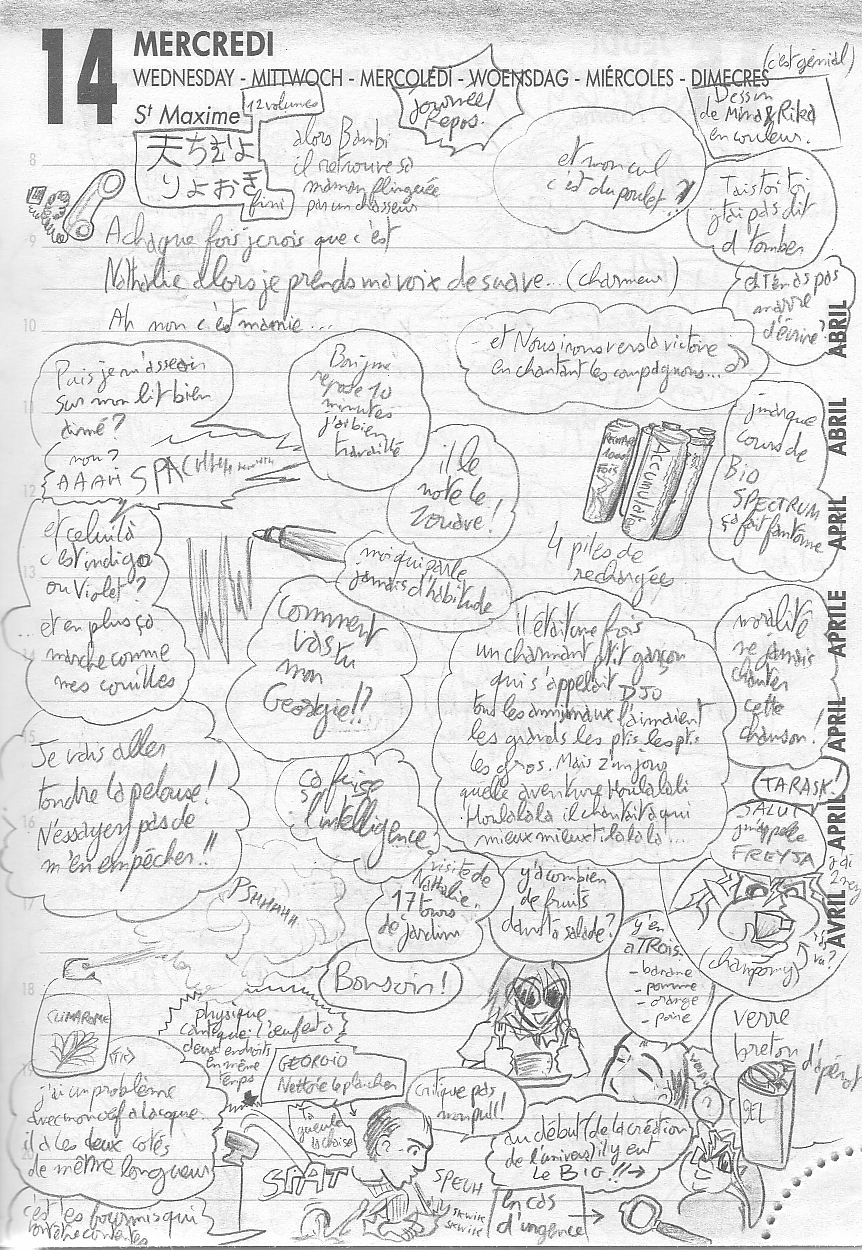 14
MERCREDI
WEDNESDAY - MITTWOCH - MERCOLEDI - WOENSDAG - MIÉRCOLES - DIMECRES
St Maxime
12 volumes
fini
journée!
Repos.
(c'est génial)
Dessin
de Mina & Rika
en couleur.
alors Bambi
il retrouve sa
maman flinguée
par un chasseur
et mon cul
c'est du poulet?
Tais toi toi
j't'ai pas dit
d'tomber
8
9
10
11
12
13
14
15
16
17
18
19
20
A chaque fois j'crois que c'est
Nathalie alors je prends ma voix de suave... (charmeur)
Ah non c'est mamie...
et t'en as pas
marre
d'écrire?
et Nous irons vers la victoire
en chantant les compagnons...
Puis je m'asseoir
sur mon lit bien
aimé?
non?
AAAH
Bon j'me
repose 10
minutes
j'ai bien
travaillé
il le
note le
Zouave!
REMPART
1000
FOIS
Accumulate
4 piles de
rechargées
j'marque
cours de
BIO
SPECTRUM
ça fait fantome
et celui là
c'est indigo
ou violet?
et en plus ça
marche comme
mes couilles
moi qui parle
jamais d'habitude
Comment
vas tu
mon
Georgie!!?
il était une fois
un charmant p'tit garçon
qui s'appelait DJO
tous les animaux l'aimaient
les grands les ptis les pts
les gros. Mais z'un jour
quelle aventure Houlalali
Houlalala il chantait a qui
mieux mieux tilalala....
moralité
ne jamais
chanter
cette
chanson!
TARASK!
SALUT
j'm'appelle
FREYJA
j'ai
2 nez
t'as
vu?
(champomy)
Je vais aller
tondre la pelouse!
N'essayez pas de
m'en empêcher!!
ça frise
l'intelligence
PSHHHHH
visite de
Nathalie.
17 tours
de jardin
y'a combien
de fruits
dans ta salade?
y'en
a TROIS.
- banane
- pomme
- orange
- poire
Bonsoir!
CLIMAROME
physique
cantique: l'oeuf est a
deux endroits
en même
temps
GEORGIO
Nettoie le plancher
ta
gueule
critique pas
mon pull!
verre
breton d'apéro
SEL
j'ai un problème
avec mon oeuf a la coque
il a les deux cotés
de même longueur
SPLAT
SPECH
SKWIK
SKWIK
au début (de la création
de l'univers) il y eut
LE BIG!!!→
En cas
d'urgence →
c'est les fourmis qui
ABRIL
ABRIL
APRIL
APRILE
APRIL
APRIL
AVRIL